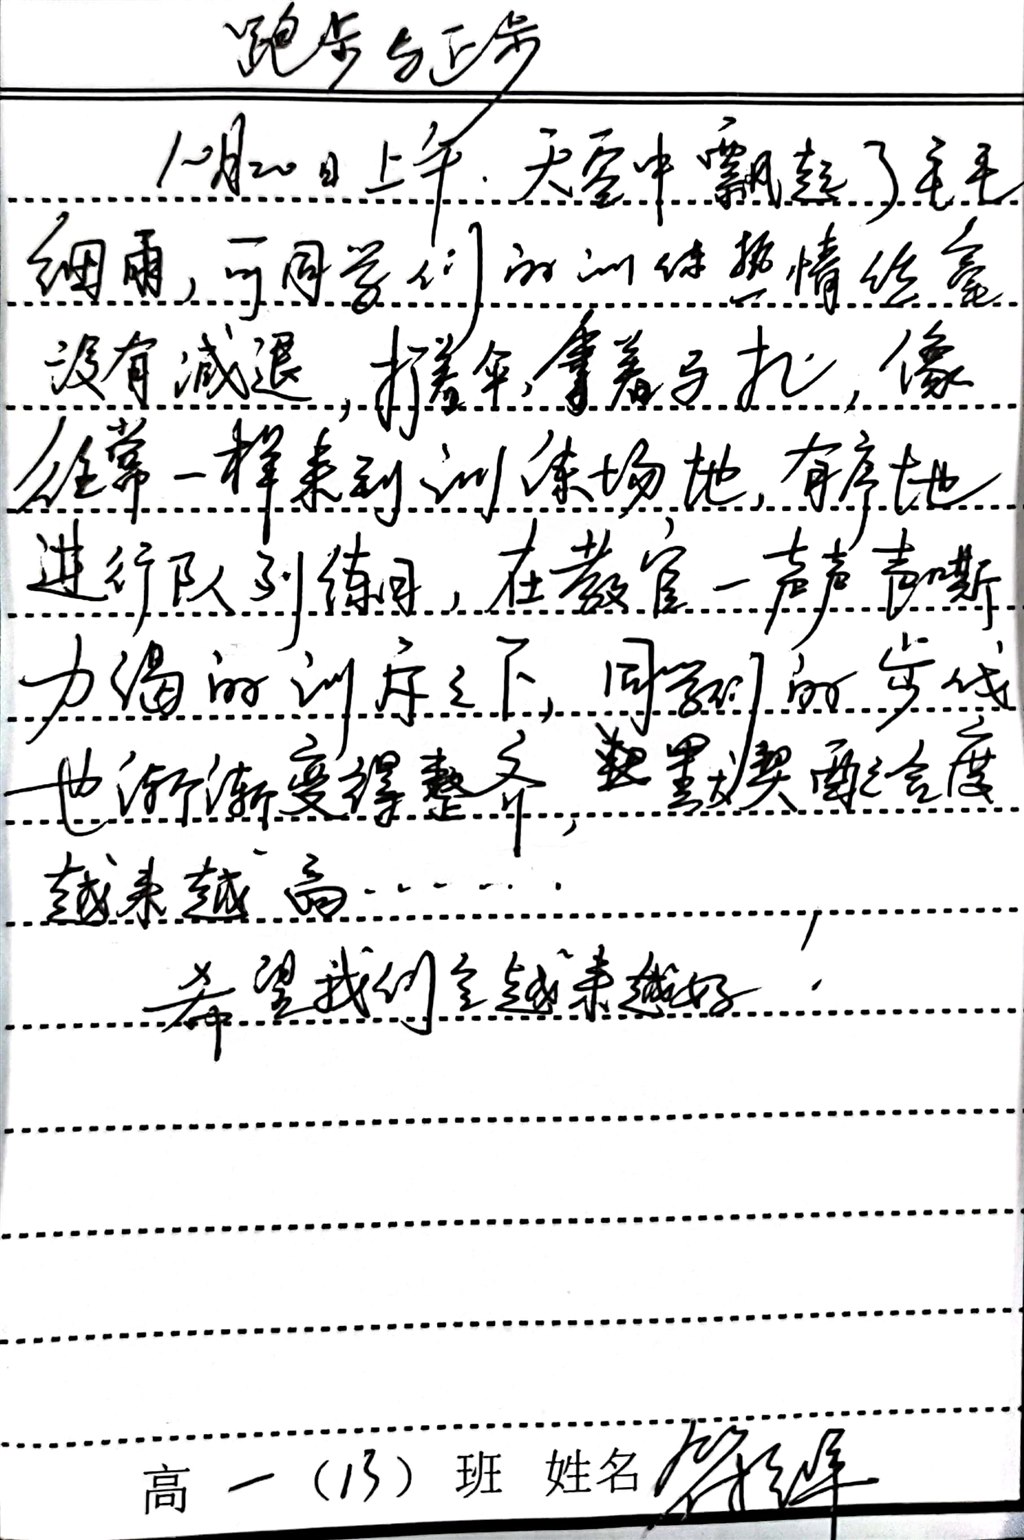 跑步与正步
10月20日上午.天空中飘起了毛毛
细雨,可同学们的训练热情丝毫
没有减退,打着伞,拿着马扎,像
往常一样来到训练场地,有序地
进行队列练习,在教官一声声声嘶
力竭的训斥之下,同学们的步伐
也渐渐变得整齐,默契配合度
越来越高......
希望我们会越来越好!
高一(13)班 姓名